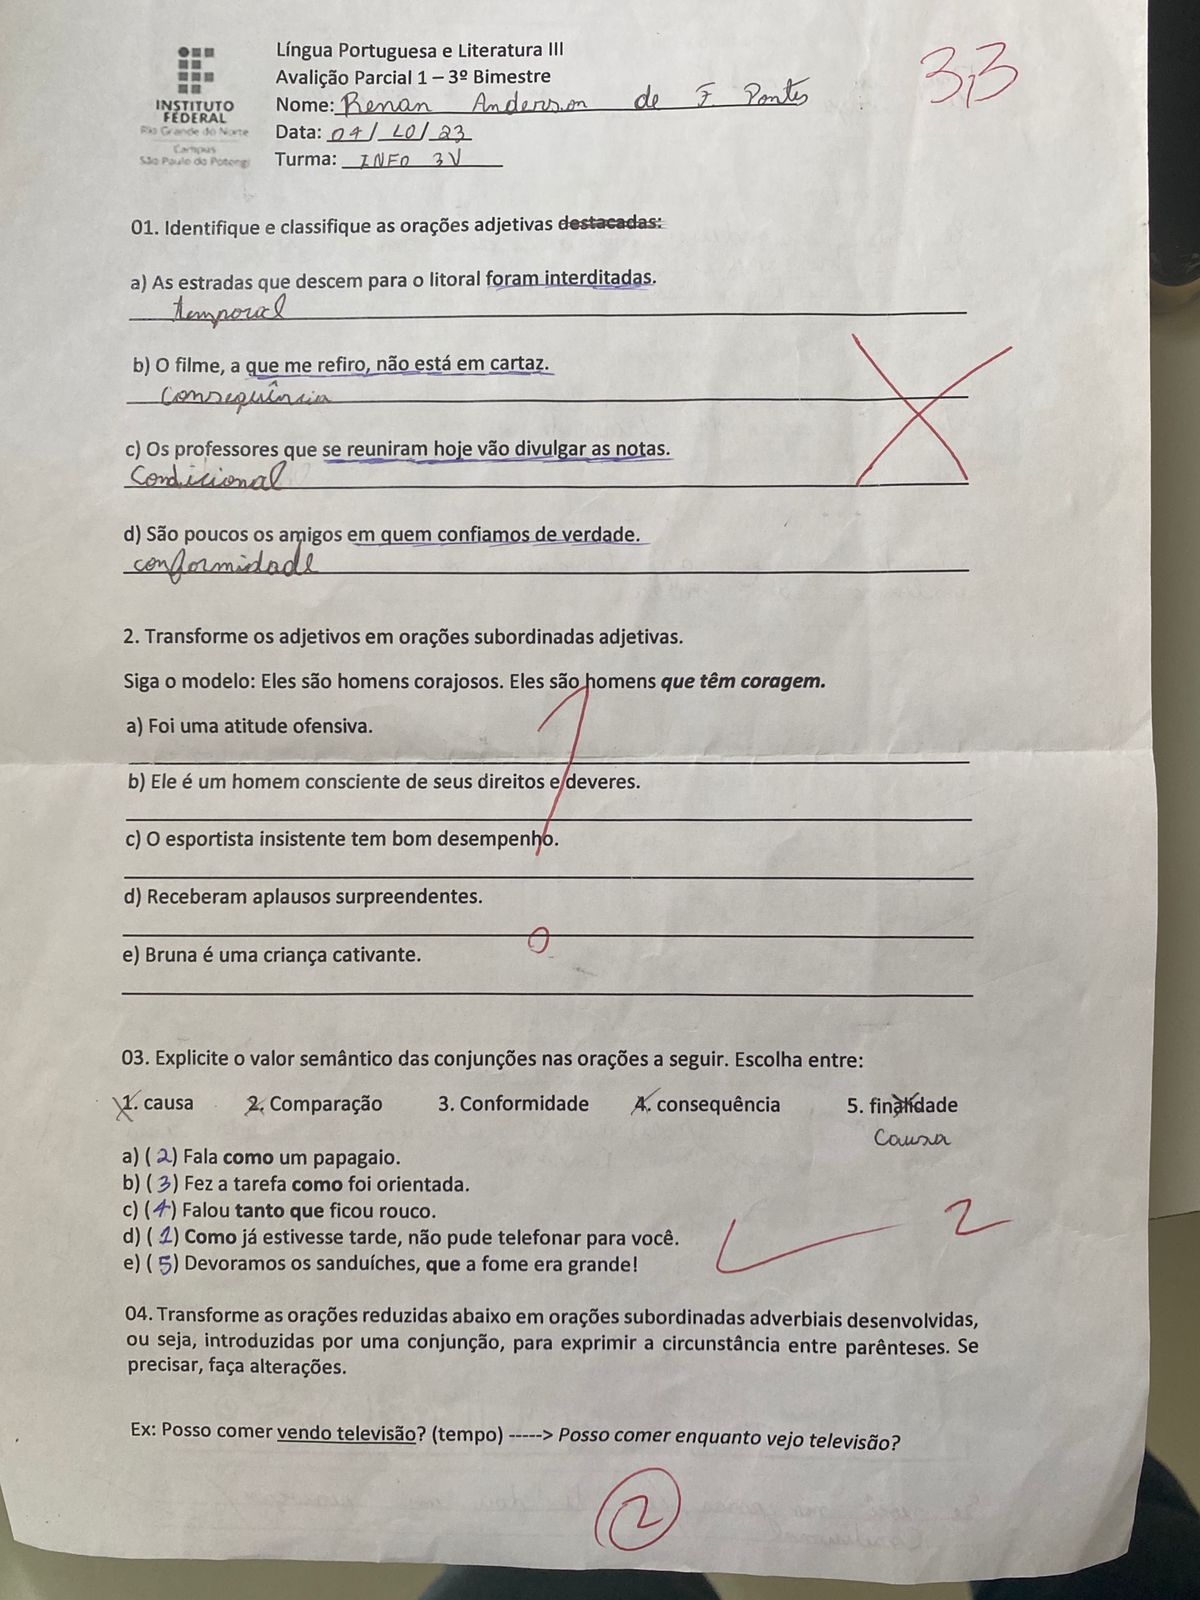 Língua Portuguesa e Literatura III
Avalição Parcial 1 – 3º Bimestre
Nome: Renan Anderson de F. Pontes
Data: 04/10/23
Turma: INFO 3V
INSTITUTO
FEDERAL
Rio Grande do Norte
Campus
São Paulo do Potengi
3,3
01. Identifique e classifique as orações adjetivas destacadas:
a) As estradas que descem para o litoral foram interditadas.
temporal
b) O filme, a que me refiro, não está em cartaz.
Consequência
c) Os professores que se reuniram hoje vão divulgar as notas.
Condicional
d) São poucos os amigos em quem confiamos de verdade.
conformidade
2. Transforme os adjetivos em orações subordinadas adjetivas.
Siga o modelo: Eles são homens corajosos. Eles são homens que têm coragem.
a) Foi uma atitude ofensiva.
b) Ele é um homem consciente de seus direitos e deveres.
c) O esportista insistente tem bom desempenho.
d) Receberam aplausos surpreendentes.
e) Bruna é uma criança cativante.
03. Explicite o valor semântico das conjunções nas orações a seguir. Escolha entre:
1. causa 2. Comparação 3. Conformidade 4. consequência 5. finalidade
Causa
a) (2) Fala como um papagaio.
b) (3) Fez a tarefa como foi orientada.
c) (4) Falou tanto que ficou rouco.
d) (1) Como já estivesse tarde, não pude telefonar para você.
e) (5) Devoramos os sanduíches, que a fome era grande!
2
04. Transforme as orações reduzidas abaixo em orações subordinadas adverbiais desenvolvidas,
ou seja, introduzidas por uma conjunção, para exprimir a circunstância entre parênteses. Se
precisar, faça alterações.
Ex: Posso comer vendo televisão? (tempo) -----> Posso comer enquanto vejo televisão?
2